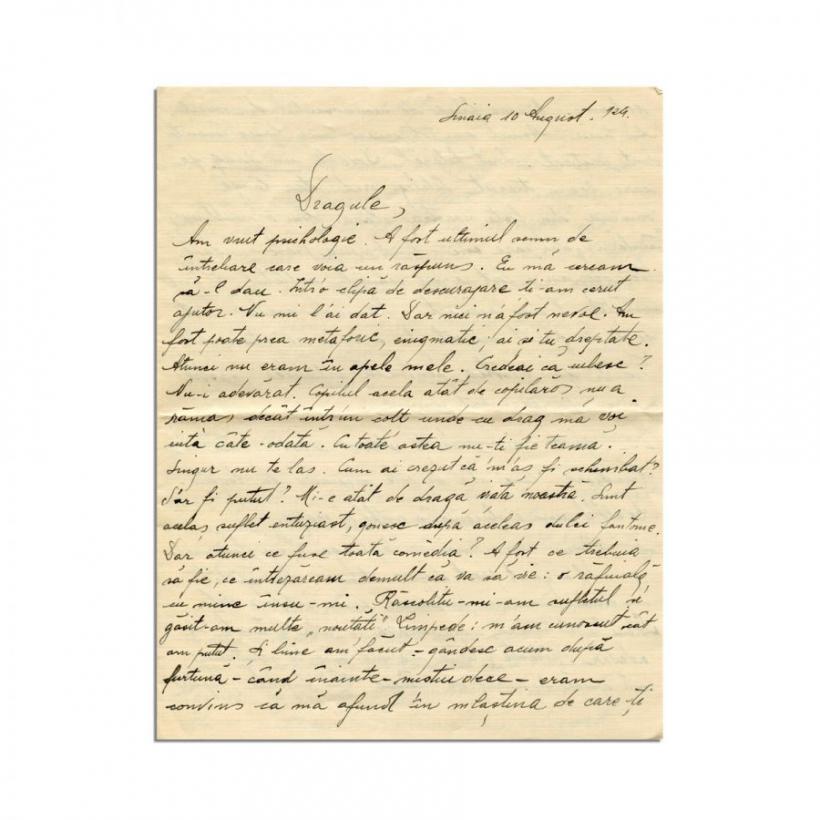 Sinaia 10 August. 924.
Dragule,
Am vrut psichologie. A fost ultimul semn de
întrebare care voia un răspuns. Eu mă cercam
să-l dau. Într'o clipă de descurajare ti-am cerut
ajutor. Nu mi l'ai dat. Dar nici n'a fost nevoe. Am
fost poate prea metaforic, enigmatic ai si tu dreptate.
Atunci nu eram în apele mele. Credeai că iubesc?
Nu-i adevărat. Copilul acela atât de copilăros nu a
rămas decât într'un colt unde cu drag mă voi
uita câte-odată. Cu toate astea nu-ti fie teama.
Singur nu te las. Cum ai crezut că m'as fi schimbat?
S'ar fi putut? Mi-e atât de dragă viata noastră. Sunt
acelas suflet entuziast, gonesc după aceleas dulci fantome.
Dar atunci ce fuse toată comedia? A fost ce trebuia
să fie, ce întrezăream demult că va să vie: o răfuială
cu mine însu-mi. Răscolitu-mi-am sufletul si
găsit-am multe "noutăti" Limpede: m'am cunoscut cât
am putut. Si bine am făcut - gândesc acum după
furtună - când înainte - eram
convins că mă afund în mlaștina de care ți